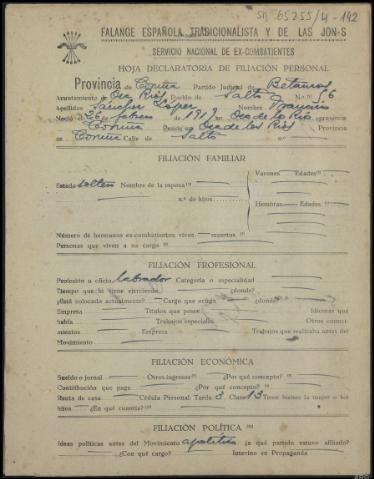 SM 65255/4-142
FALANGE ESPAÑOLA TRADICIONALISTA Y DE LAS JON-S
SERVICIO NACIONAL DE EX-COMBATIENTES
HOJA DECLARATORIA DE FILIACIÓN PERSONAL
Provincia de Coruña Partido Judicial de Betanzos
Ayuntamiento de Oza Rios Pueblo de Salto N.º 56
Apellidos Sánchez López Nombre
Nació el 26 de febrero de 1919 en Oza de los Rios provincia
Coruña Reside en Oza de los Rios Provincia
en Coruña Calle de Salto
FILIACIÓN FAMILIAR
Varones Edades
Estado soltero Nombre de la esposa
n.º de hijos
Hembras Edades
Número de hermanos ex-combatientes, viven muertos
Personas que viven a su cargo
FILIACIÓN PROFESIONAL
Profesión u oficio labrador Categoría o especialidad
Tiempo que la viene ejerciendo ¿donde?
¿Está colocado actualmente? Cargo que ocupa ¿donde?
Empresa Títulos que posee Idiomas que
habla Trabajos especiales Otros conoci-
mientos Empresa Trabajos que realizaba antes del
Movimiento
FILIACIÓN ECONÓMICA
Sueldo o jornal Otros ingresos ¿Por qué concepto?
Contribución que paga ¿Por qué concepto?
Renta de casa Cédula Personal Tarifa 3 Clase 13 Tiene bienes la mujer o los
hijos ¿En qué cuantía?
FILIACIÓN POLÍTICA
Ideas políticas antes del Movimiento apolítico ¿a qué partido estuvo afiliado?
¿Con qué cargo? Intervino en Propaganda